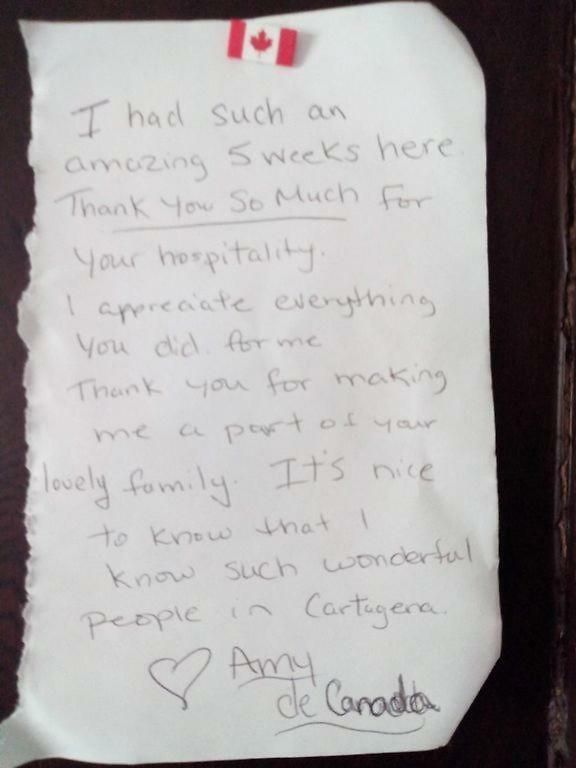 I had such an
amazing 5 weeks here.
Thank You So Much for
your hospitality.
I appreciate everything
you did. for me
Thank you for making
me a part of your
lovely family. It's nice
to know that I
know such wonderful
people in Cartagena.
♡ Amy
de Canada